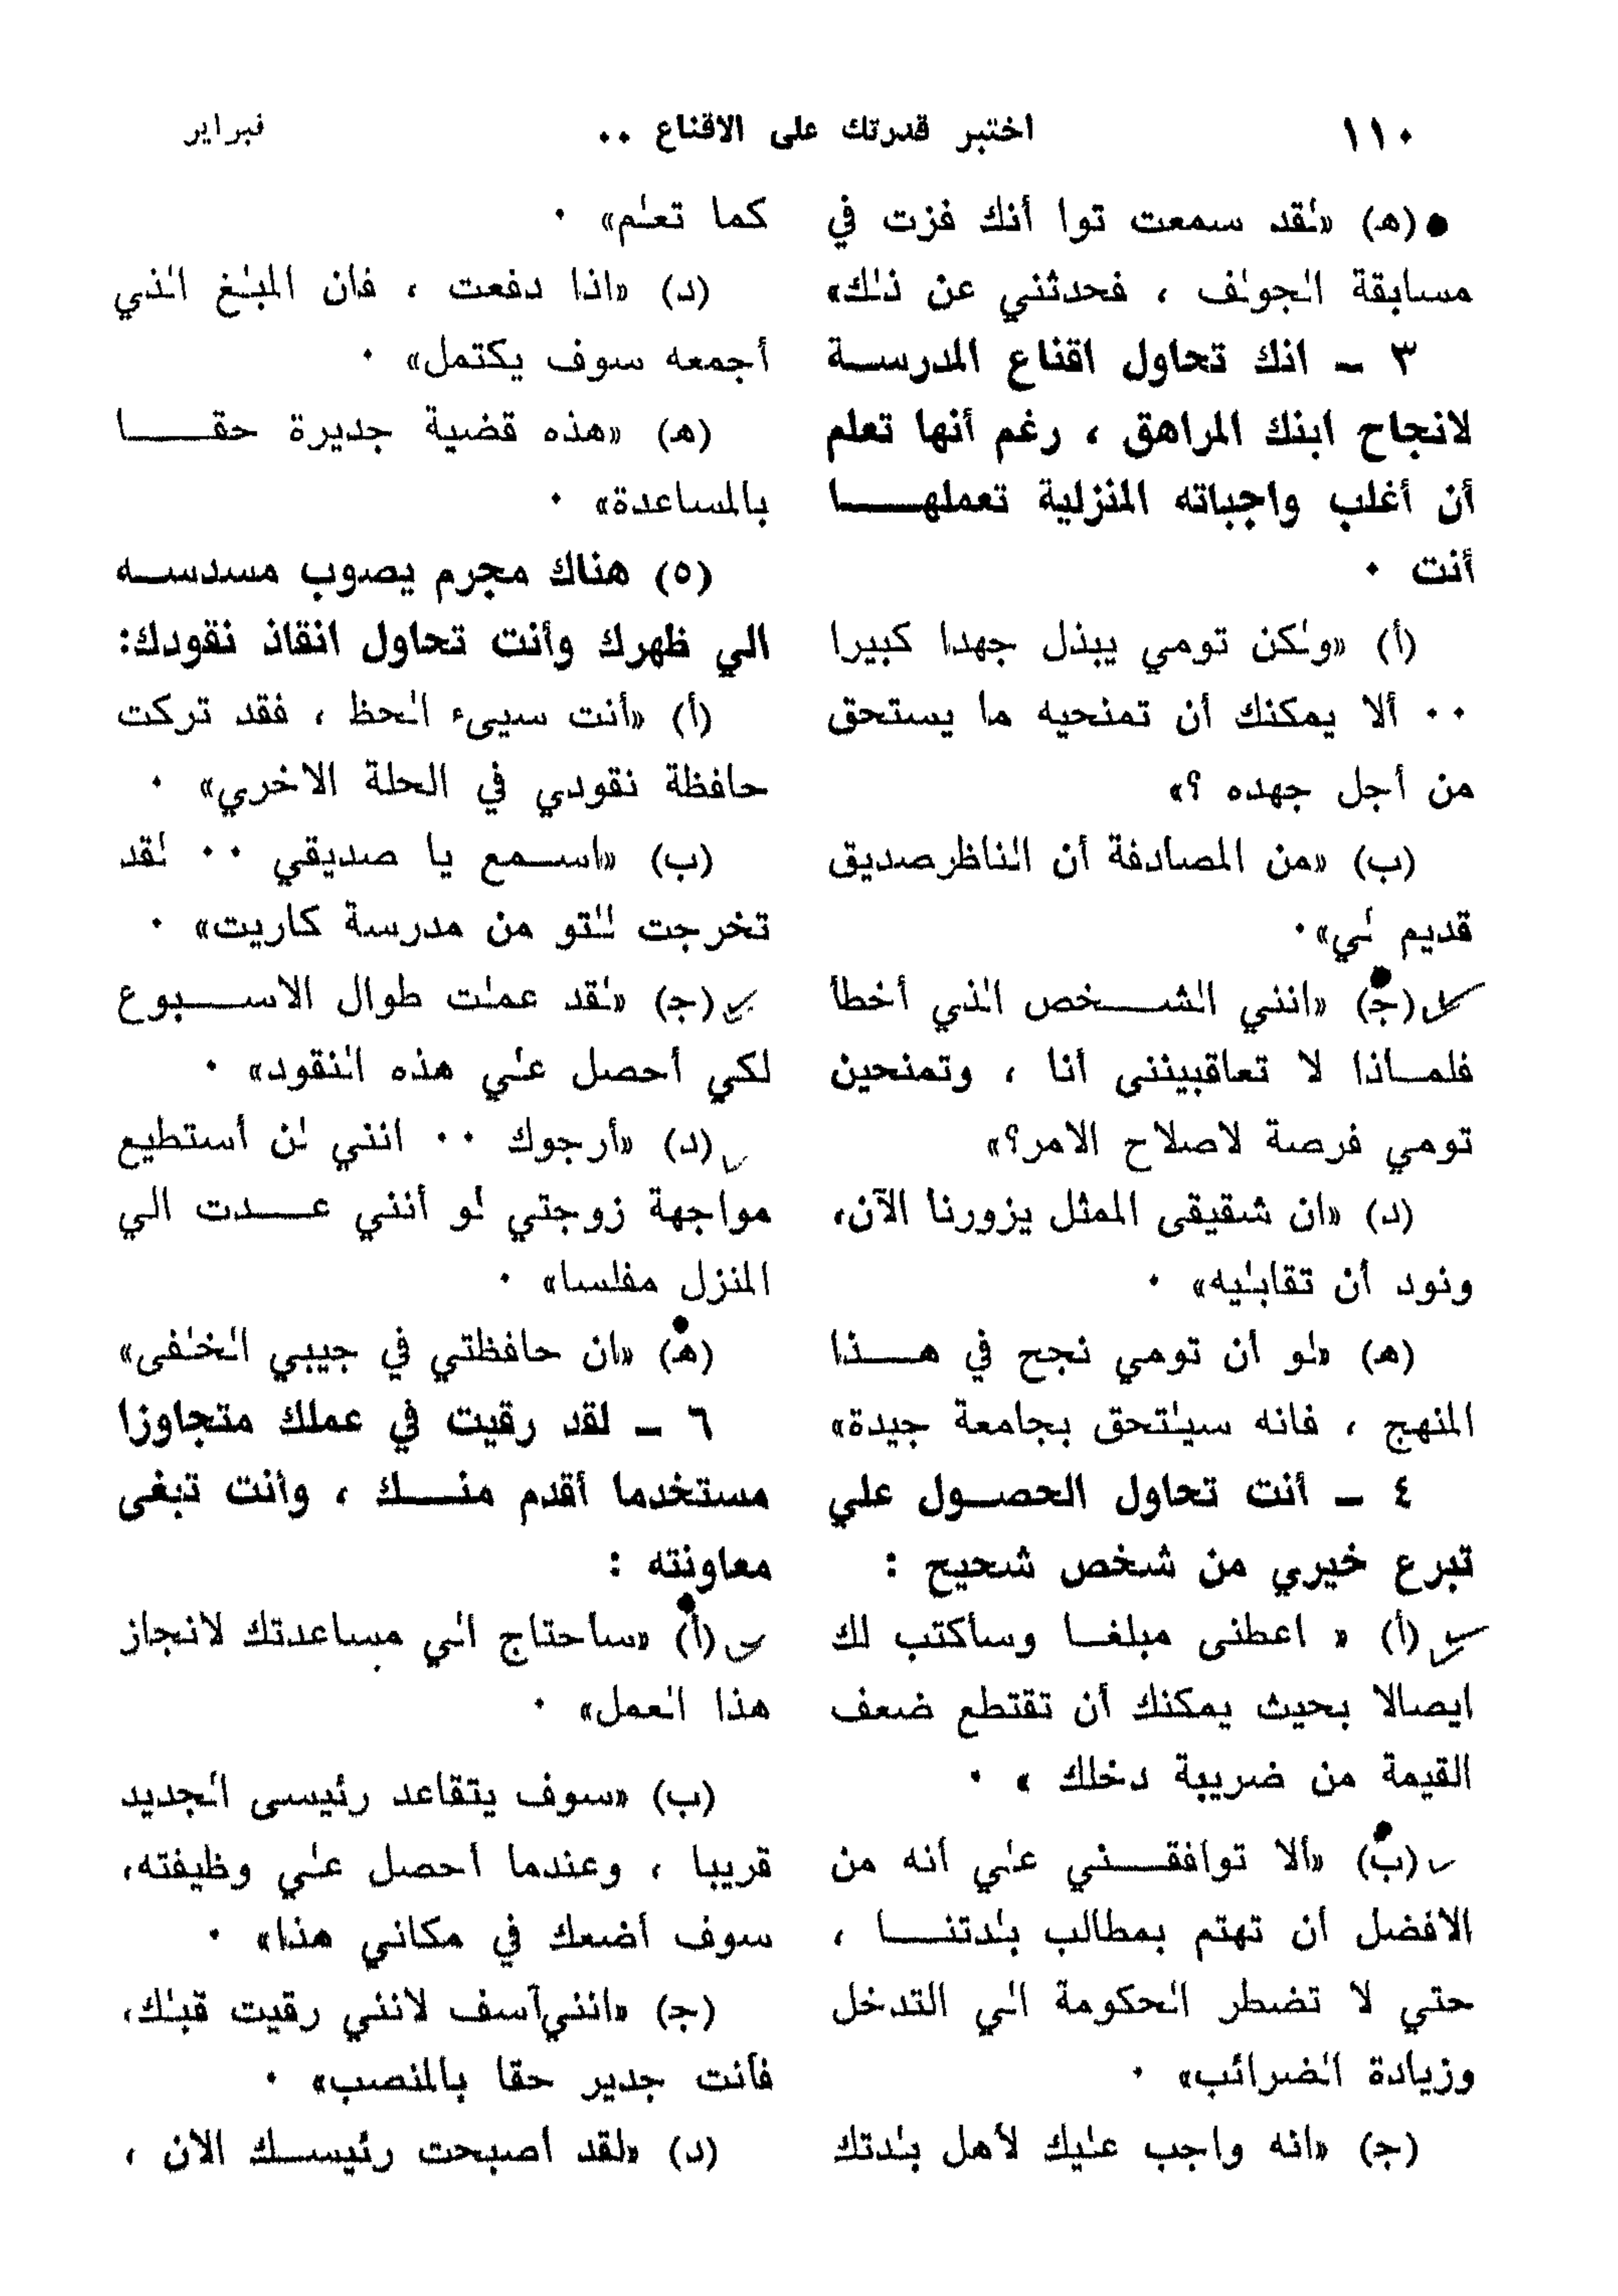 ١١٠
اختبر قدرتك على الاقناع ..
فبراير
● (هـ) «لقد سمعت توا أنك فزت في
مسابقة الجولف ، فحدثني عن ذلك»
٣ ـ انك تحاول اقناع المدرســة
لانجاح ابنك المراهق ، رغم أنها تعلم
أن أغلب واجباته المنزلية تعملهــــا
أنت .
(أ) «ولكن تومي يبذل جهدا كبيرا
.. ألا يمكنك أن تمنحيه ما يستحق
من أجل جهده ؟»
(ب) «من المصادفة أن الناظر صديق
قديم لي».
(جـ) «انني الشـــخص الذي أخطأ
فلمــاذا لا تعاقبيننى أنا ، وتمنحين
تومي فرصة لاصلاح الامر؟»
(د) «ان شقيقى الممثل يزورنا الآن،
ونود أن تقابليه» .
(هـ) «لو أن تومي نجح في هـــذا
المنهج ، فانه سيلتحق بجامعة جيدة»
٤ ـ أنت تحاول الحصــول علي
تبرع خيري من شخص شحيح :
(أ) « اعطنى مبلغــا وسأكتب لك
ايصالا بحيث يمكنك أن تقتطع ضعف
القيمة من ضريبة دخلك » .
(ب) «ألا توافقــــني علي أنه من
الافضل أن تهتم بمطالب بلدتنـــا ،
حتي لا تضطر الحكومة الي التدخل
وزيادة الضرائب» .
(جـ) «انه واجب عليك لأهل بلدتك
كما تعلم» .
(د) «اذا دفعت ، فان المبلغ الذي
أجمعه سوف يكتمل» .
(هـ) «هذه قضية جديرة حقـــــا
بالمساعدة» .
(٥) هناك مجرم يصوب مسدســه
الي ظهرك وأنت تحاول انقاذ نقودك:
(أ) «أنت سييء الحظ ، فقد تركت
حافظة نقودي في الحلة الاخري» .
(ب) «اســمع يا صديقي .. لقد
تخرجت للتو من مدرسة كاريت» .
(جـ) «لقد عملت طوال الاســـبوع
لكي أحصل علي هذه النقود» .
(د) «أرجوك .. انني لن أستطيع
مواجهة زوجتي لو أنني عـــدت الي
المنزل مفلسا» .
(هـ) «ان حافظتي في جيبي الخلفى»
٦ ـ لقد رقيت في عملك متجاوزا
مستخدما أقدم منـــك ، وأنت تبغى
معاونته :
(أ) «سأحتاج الي مساعدتك لانجاز
هذا العمل» .
(ب) «سوف يتقاعد رئيسى الجديد
قريبا ، وعندما أحصل علي وظيفته،
سوف أضعك في مكاني هذا» .
(جـ) «انني آسف لانني رقيت قبلك،
فأنت جدير حقا بالمنصب» .
(د) «لقد أصبحت رئيســـك الان ،